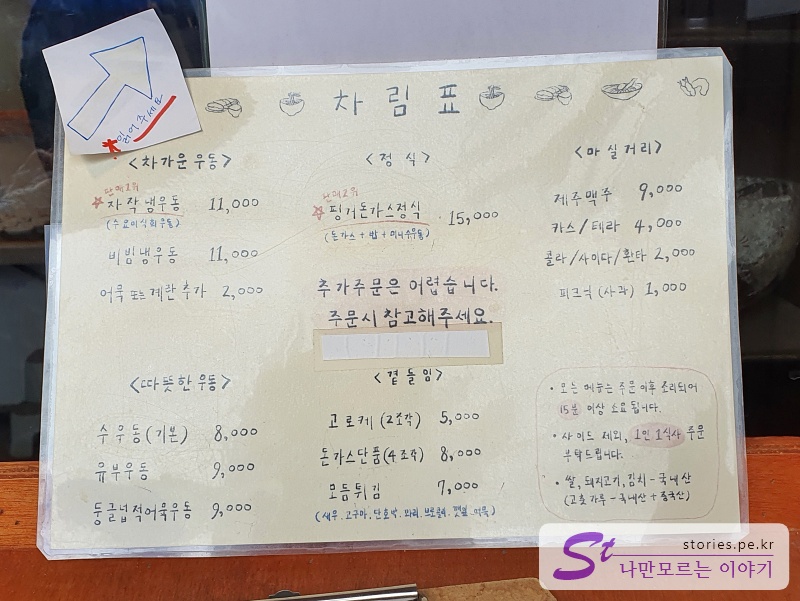 읽어주세요
차림표
<차가운 우동>
단메요위
자작냉우동 11,000
(수요미식회우동)
비빔냉우동 11,000
어묵 또는 계란 추가 2,000
<따뜻한 우동>
수우동(기본) 8,000
유부우동 9,000
둥글넙적어묵우동 9,000
<정식>
핑거돈가스정식 15,000
(돈가스+밥+미니수우동)
추가주문은 어렵습니다.
주문시 참고해주세요.
<곁들임>
고로케(2조각) 5,000
돈가스단품(4조각) 8,000
모듬튀김 7,000
(새우, 고구마, 단호박, 꽈리, 브로콜리, 깻잎, 어묵)
<마실거리>
제주맥주 9,000
카스/테라 4,000
콜라/사이다/환타 2,000
피크닉(사과) 1,000
• 모든 메뉴는 주문 이후 조리되어
15분 이상 소요 됩니다.
• 사이드 제외, 1인 1식사 주문
부탁드립니다.
• 쌀, 돼지고기, 김치 - 국내산
(고춧가루 - 국내산 + 중국산)
St
stories.pe.kr
나만모르는 이야기